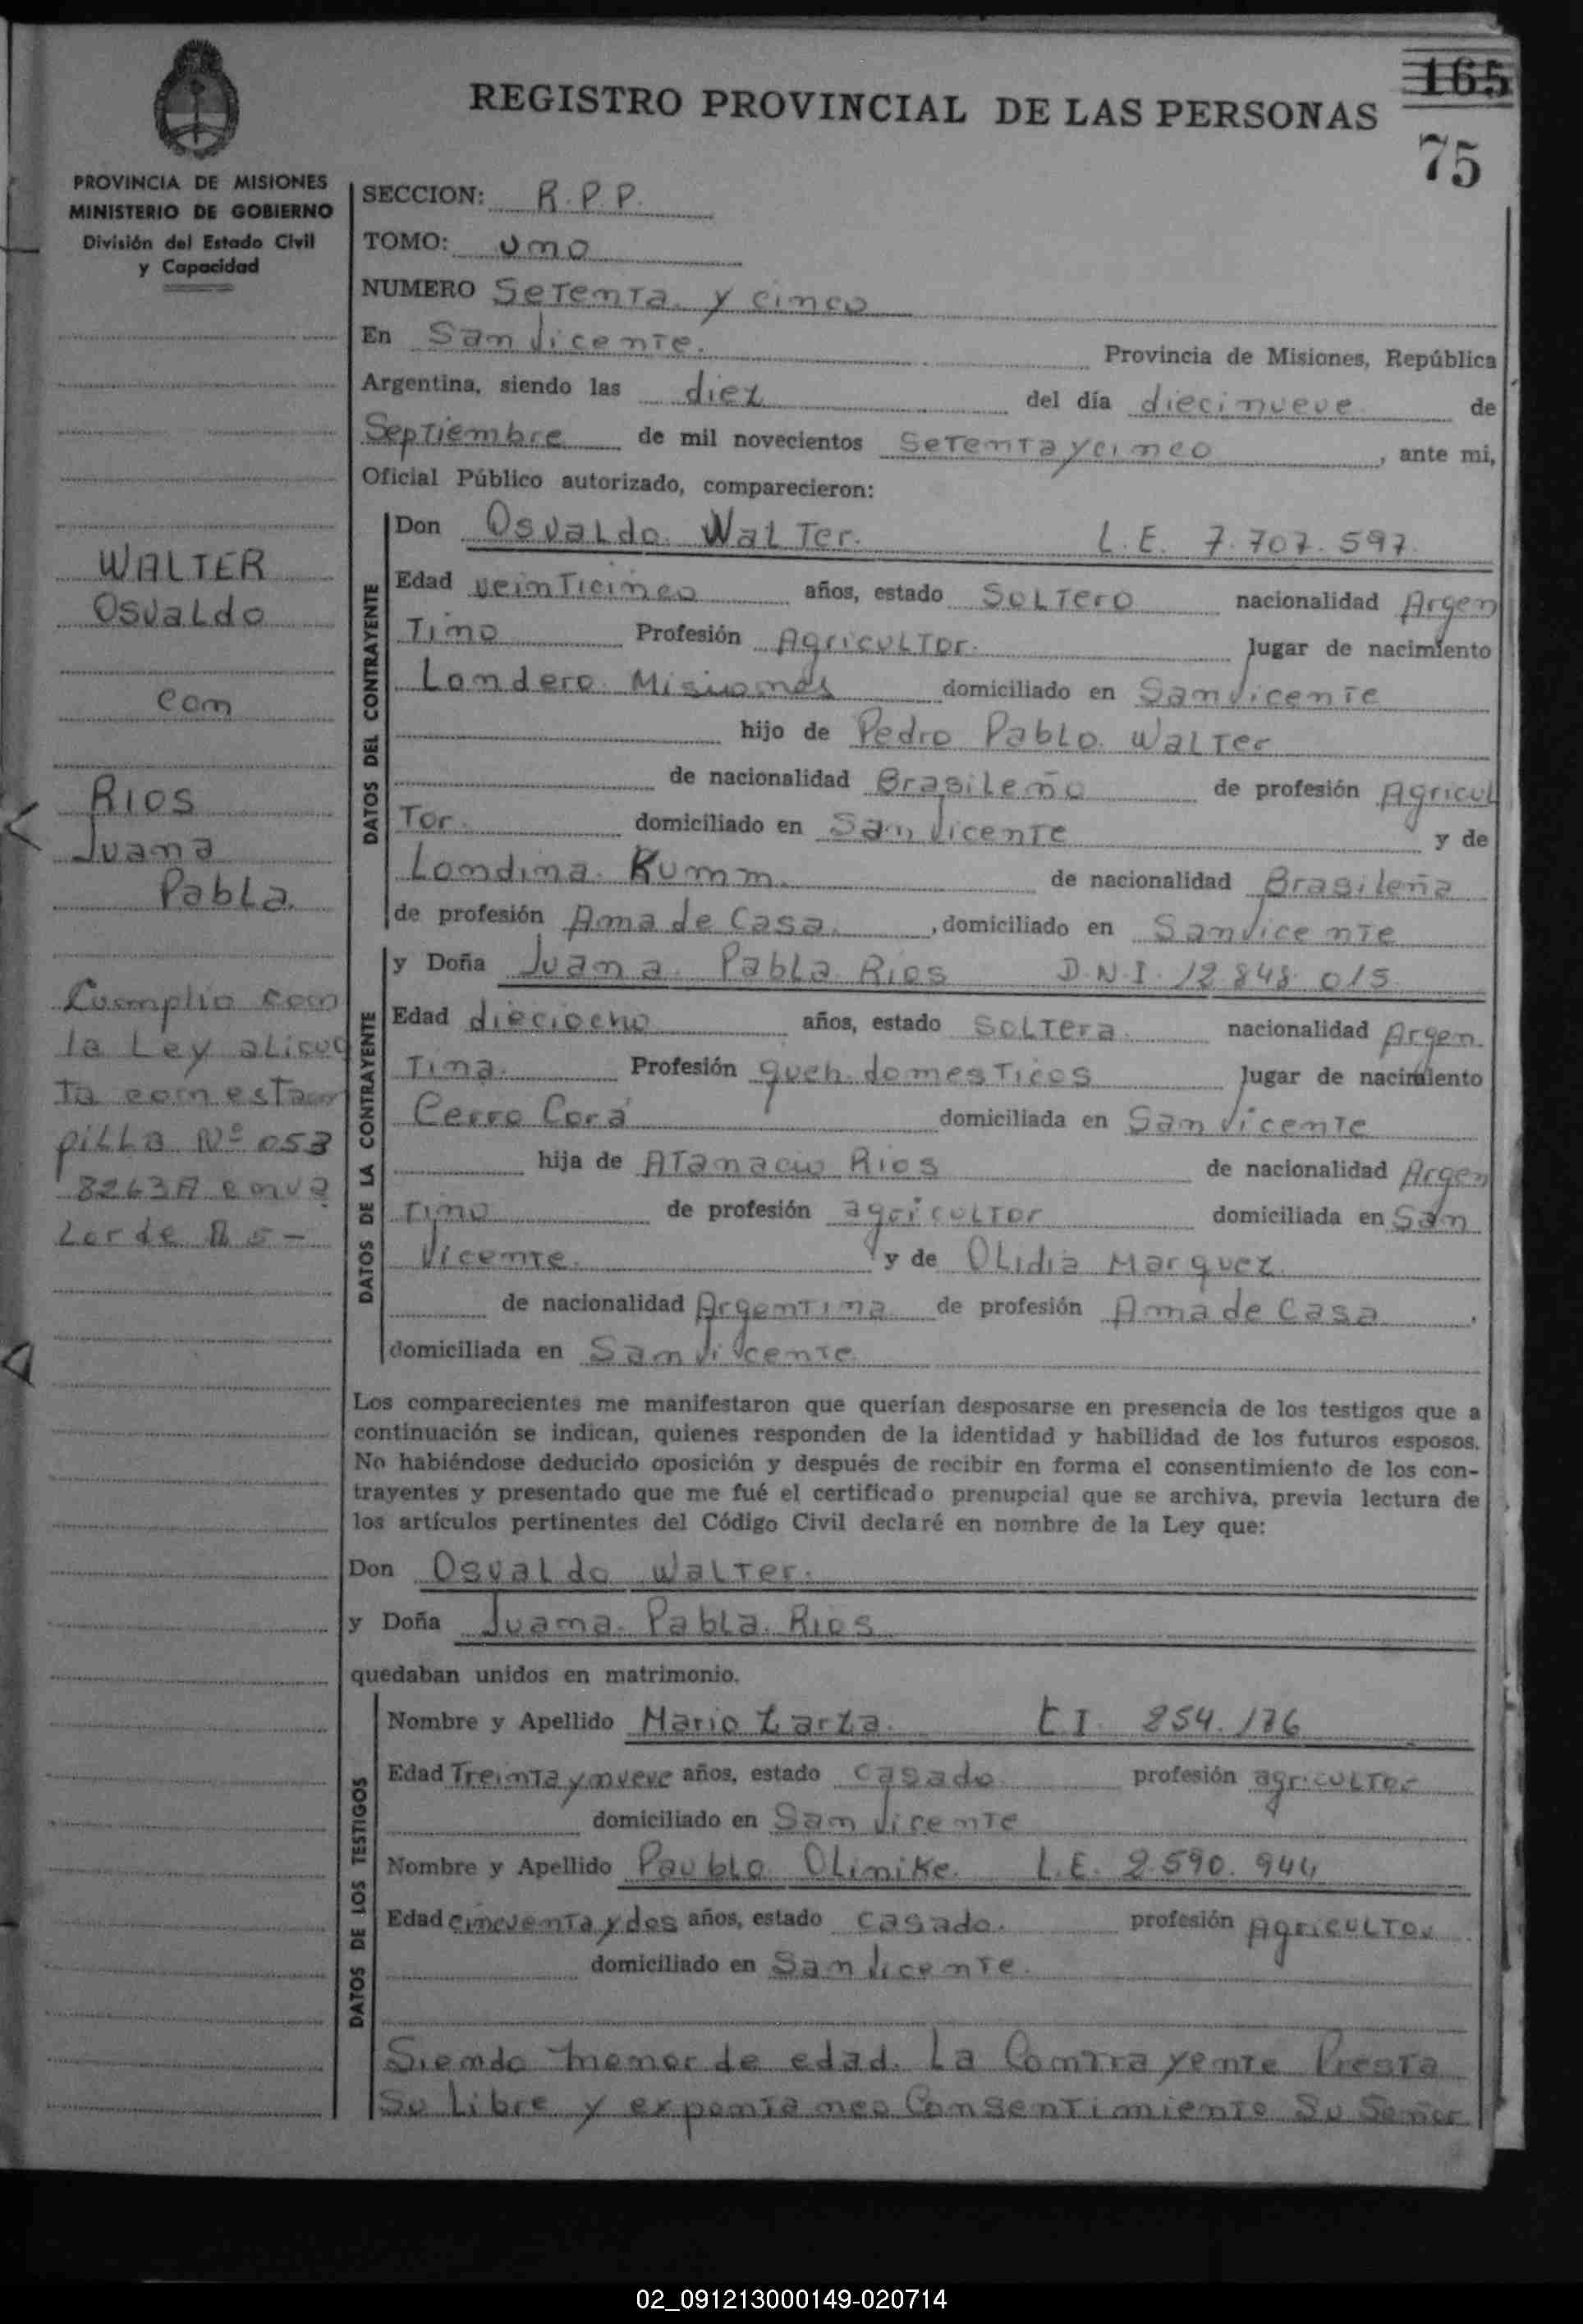 165
REGISTRO PROVINCIAL DE LAS PERSONAS
75
PROVINCIA DE MISIONES
MINISTERIO DE GOBIERNO
División del Estado Civil
y Capacidad
WALTER
Osvaldo
con
Rios
Juana
Pabla.
Cumplio con
la Ley alicuo
ta con estam
pilla Nº 053
8263A en va
lor de
SECCION: R.P.P.
TOMO: uno
NUMERO Setenta y cinco
En San Vicente. Provincia de Misiones, República
Argentina, siendo las diez del día diecinueve de
Septiembre de mil novecientos setenta y cinco, ante mi,
Oficial Público autorizado, comparecieron:
DATOS DEL CONTRAYENTE
Don Osvaldo Walter. L.E. 7.707.597.
Edad veinticinco años, estado Soltero nacionalidad Argen
tino Profesión Agricultor. lugar de nacimiento
Londero Misiones domiciliado en San Vicente
hijo de Pedro Pablo Walter
de nacionalidad Brasileño de profesión Agricul
tor. domiciliado en San Vicente y de
Londina Kumm. de nacionalidad Brasileña
de profesión Ama de Casa, domiciliado en San Vicente
DATOS DE LA CONTRAYENTE
y Doña Juana Pabla Rios D.N.I. 12.848.015
Edad dieciocho años, estado Soltera. nacionalidad Argen
tina. Profesión queh. domesticos lugar de nacimiento
Cerro Corá domiciliada en San Vicente
hija de Atanacio Rios de nacionalidad Argen
tino de profesión agricultor domiciliada en San
Vicente. y de Olidia Marquez
de nacionalidad Argentina de profesión Ama de Casa,
domiciliada en San Vicente
Los comparecientes me manifestaron que querían desposarse en presencia de los testigos que a
continuación se indican, quienes responden de la identidad y habilidad de los futuros esposos.
No habiéndose deducido oposición y después de recibir en forma el consentimiento de los con-
trayentes y presentado que me fué el certificado prenupcial que se archiva, previa lectura de
los artículos pertinentes del Código Civil declaré en nombre de la Ley que:
Don Osvaldo Walter.
y Doña Juana Pabla Rios
quedaban unidos en matrimonio.
DATOS DE LOS TESTIGOS
Nombre y Apellido Mario Zarza. 254.176
Edad Treinta y nueve años, estado casado profesión agricultor
domiciliado en San Vicente
Nombre y Apellido Paublo Olinike. L.E. 2.590.944
Edad cincuenta y dos años, estado casado. profesión Agricultor
domiciliado en San Vicente.
Siendo menor de edad. La Contrayente Presta
Su Libre y expontaneo Consentimiento Su Señor
02_091213000149-020714